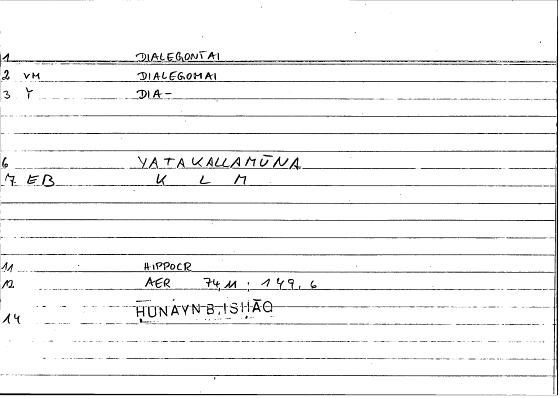 1 DIALEGONTAI
2 VM DIALEGOMAI
3 Y DIA-
6 YATAKALLAMŪNA
7 EB K L M
11 HIPPOCR
12 AER 74,11 : 149,6
14 ḤUNAYN B. ISḤĀQ